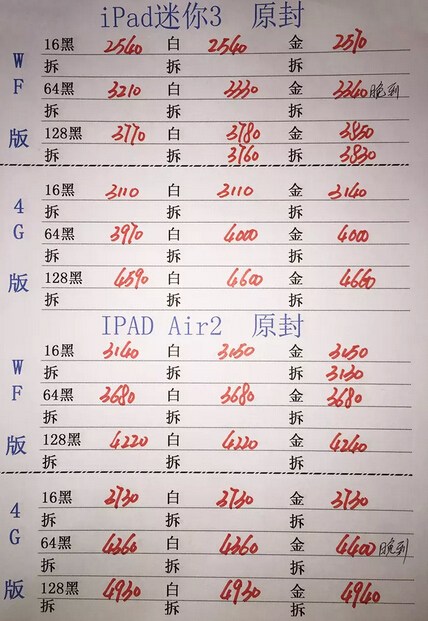 iPad迷你3 原封
WF版
16黑 2540 白 2540 金 2570
拆 拆 拆
64黑 3210 白 3330 金 3340晚到
拆 拆 拆
128黑 3770 白 3780 金 3850
拆 拆 3760 拆 3830
4G版
16黑 3110 白 3110 金 3140
拆 拆 拆
64黑 3970 白 4000 金 4000
拆 拆 拆
128黑 4590 白 4600 金 4660
拆 拆 拆
IPAD Air2 原封
WF版
16黑 3140 白 3150 金 3150
拆 拆 拆 3130
64黑 3680 白 3680 金 3680
拆 拆 拆
128黑 4220 白 4220 金 4240
拆 拆 拆
4G版
16黑 3730 白 3730 金 3730
拆 拆 拆
64黑 4360 白 4360 金 4400晚到
拆 拆 拆
128黑 4930 白 4930 金 4940
拆 拆 拆